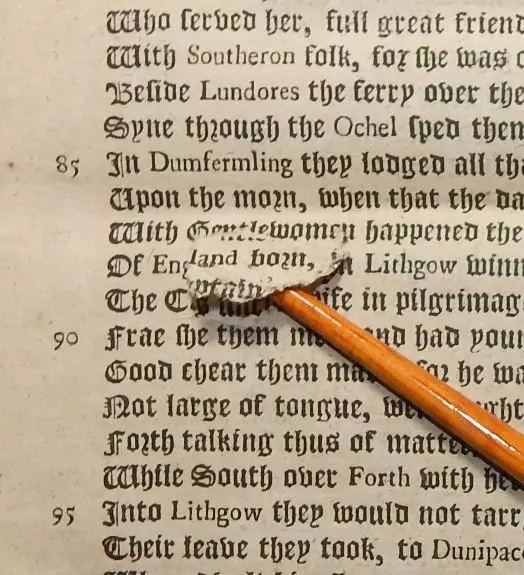 Who served her, full great friend
With Southeron folk, for she was
Beside Lundores the ferry over the
Syne through the Ochel sped them
85 In Dumfermling they lodged all
Upon the morn, when that the
With Gentlewomen happened the
Of England born, in Lithgow
The in pilgrimag
90 Frae she them had
Good chear them he
Not large of tongue,
Forth talking thus of
While South over Forth with
95 Into Lithgow they would not tarr
Their leave they took, to Dunipac